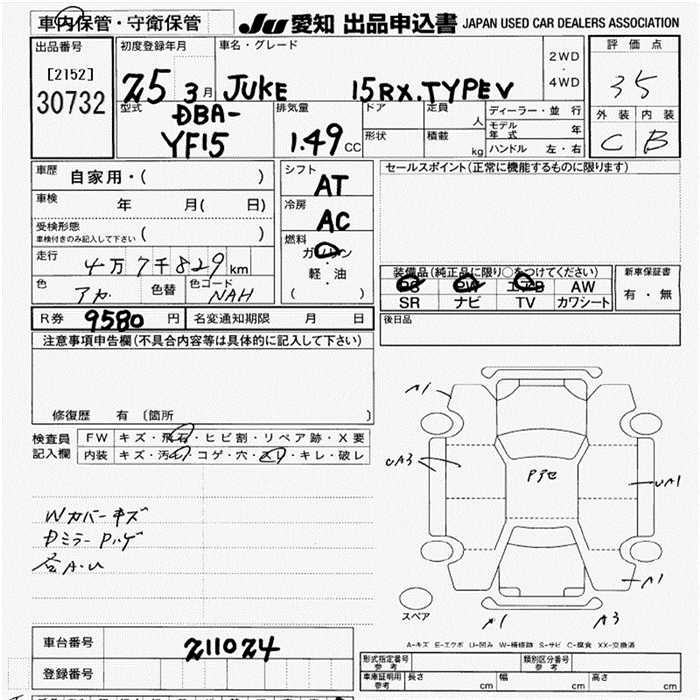 車内保管・守衛保管 JU 愛知 出品申込書 JAPAN USED CAR DEALERS ASSOCIATION
出品番号 初度登録年月 車名・グレード 2WD・4WD 評価点
[2152] 30732 25 3月 JUKE 15RX.TYPE V 35
型式 DBA-YF15 排気量 1.49 CC ドア 定員 人 ディーラー・並行 外装 内装
形状 積載 kg モデル年式 年 C B
ハンドル 左・右
車歴 自家用・( ) シフト AT セールスポイント(正常に機能するものに限ります)
車検 年 月( 日) 冷房 AC
受検形態 ( )
車検付きのみ記入して下さい
燃料 ガソリン・軽・油 ( )
走行 4万7千829km
色 アカ 色替 色コード NAH
装備品(純正品に限り○をつけてください) 新車保証書
PS PW エアB AW 有・無
SR ナビ TV カワシート
R券 9580円 名変通知期限 月 日 後日品
注意事項申告欄(不具合内容等は具体的に記入して下さい)
修復歴 有 〔箇所 〕
検査員記入欄 FW キズ・飛石・ヒビ割・リペア跡・X要
内装 キズ・汚レ・コゲ・穴・スレ・キレ・破レ
Wカバーキズ
DミラーPハゲ
各A.U
A1
UA3
Pアセ
UA1
A1
A1
A3
スペア
A-キズ E-エクボ U-凹み W-補修跡 S-サビ C-腐食 XX-交換済
車台番号 211024
登録番号
形式指定番号 参考 類別区分番号 参考
車庫証明用 参考 長さ cm 幅 cm 高さ cm